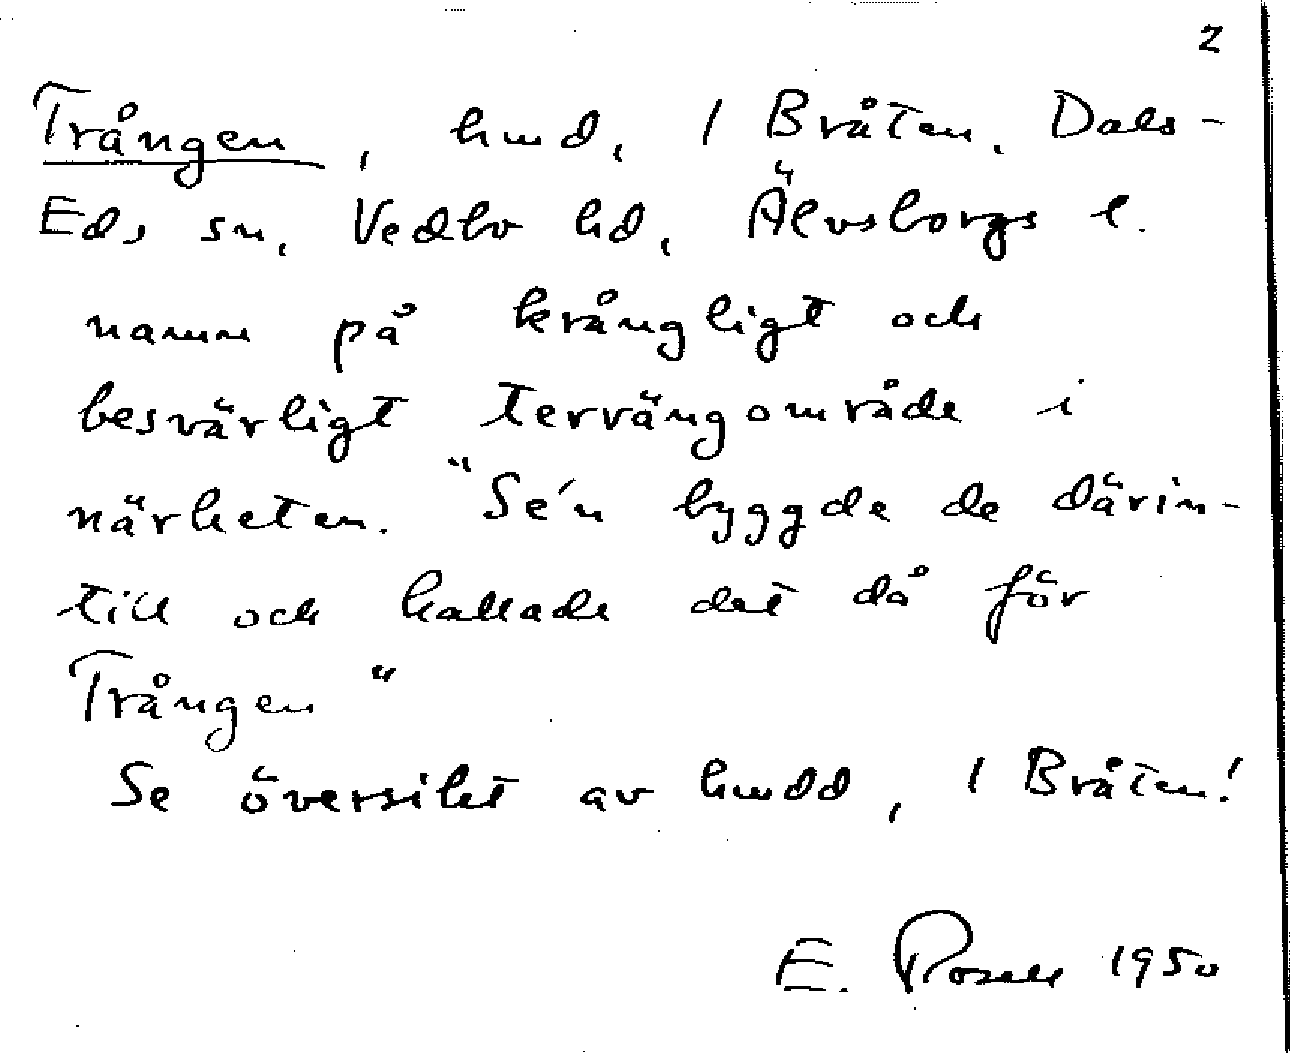 2
Trången, hmd, 1 Bråten. Dals-
Eds sn, Vedbo hd, Älvsborgs l.
namn på krångligt och
besvärligt tervängområde i
närheten. "Se'n byggde de därin-
till och kallade det då för
Trången"
Se översikt av hmdd, 1 Bråten!
E. 1950